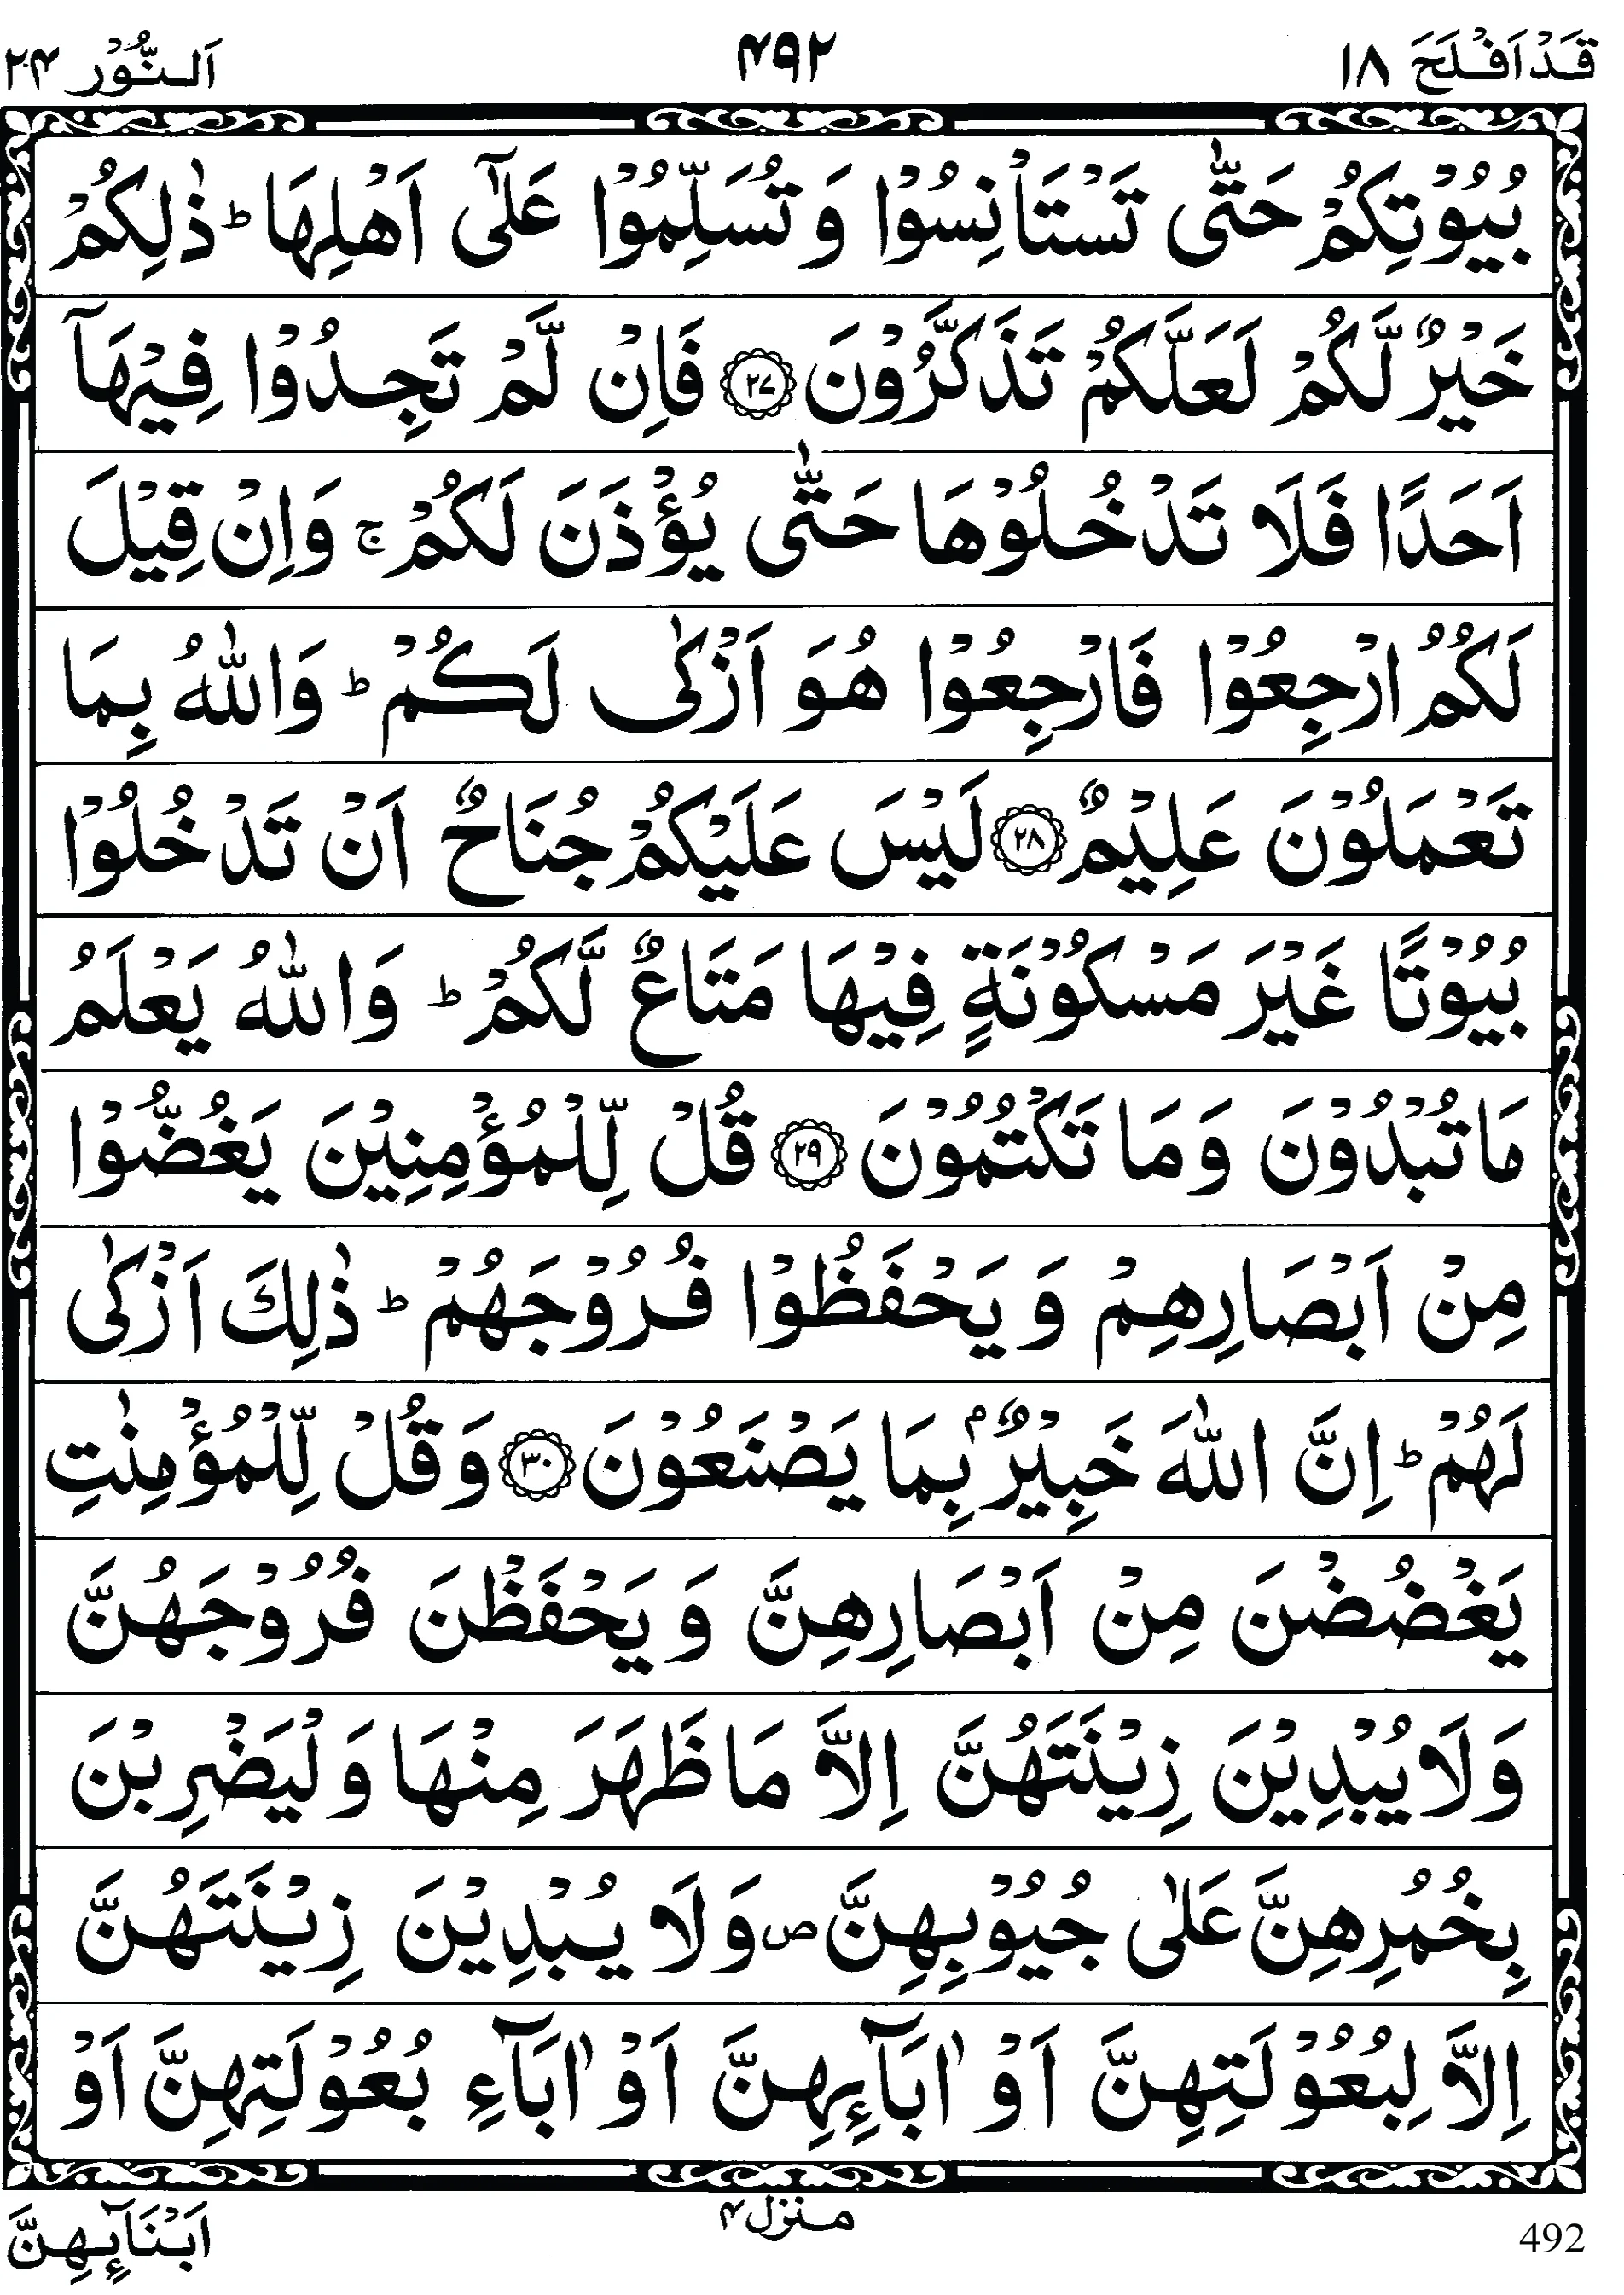 قَدْ اَفْلَحَ ۱۸ ۴۹۲ اَلنُّوْر ۲۴
بُيُوْتِكُمْ حَتّٰى تَسْتَاْنِسُوْا وَ تُسَلِّمُوْا عَلٰٓى اَهْلِهَا ؕ ذٰلِكُمْ
خَيْرٌ لَّكُمْ لَعَلَّكُمْ تَذَكَّرُوْنَ ۝۲۷ فَاِنْ لَّمْ تَجِدُوْا فِيْهَاۤ
اَحَدًا فَلَا تَدْخُلُوْهَا حَتّٰى يُؤْذَنَ لَكُمْ ۚ وَاِنْ قِيْلَ
لَكُمُ ارْجِعُوْا فَارْجِعُوْا هُوَ اَزْكٰى لَكُمْ ؕ وَاللّٰهُ بِمَا
تَعْمَلُوْنَ عَلِيْمٌ ۝۲۸ لَيْسَ عَلَيْكُمْ جُنَاحٌ اَنْ تَدْخُلُوْا
بُيُوْتًا غَيْرَ مَسْكُوْنَةٍ فِيْهَا مَتَاعٌ لَّكُمْ ؕ وَاللّٰهُ يَعْلَمُ
مَا تُبْدُوْنَ وَمَا تَكْتُمُوْنَ ۝۲۹ قُلْ لِّلْمُؤْمِنِيْنَ يَغُضُّوْا
مِنْ اَبْصَارِهِمْ وَ يَحْفَظُوْا فُرُوْجَهُمْ ؕ ذٰلِكَ اَزْكٰى
لَهُمْ ؕ اِنَّ اللّٰهَ خَبِيْرٌۢ بِمَا يَصْنَعُوْنَ ۝۳۰ وَقُلْ لِّلْمُؤْمِنٰتِ
يَغْضُضْنَ مِنْ اَبْصَارِهِنَّ وَ يَحْفَظْنَ فُرُوْجَهُنَّ
وَلَا يُبْدِيْنَ زِيْنَتَهُنَّ اِلَّا مَا ظَهَرَ مِنْهَا وَلْيَضْرِبْنَ
بِخُمُرِهِنَّ عَلٰى جُيُوْبِهِنَّ ۪ وَلَا يُبْدِيْنَ زِيْنَتَهُنَّ
اِلَّا لِبُعُوْلَتِهِنَّ اَوْ اٰبَآئِهِنَّ اَوْ اٰبَآءِ بُعُوْلَتِهِنَّ اَوْ
492 منزل ۴ اَبْنَآئِهِنَّ